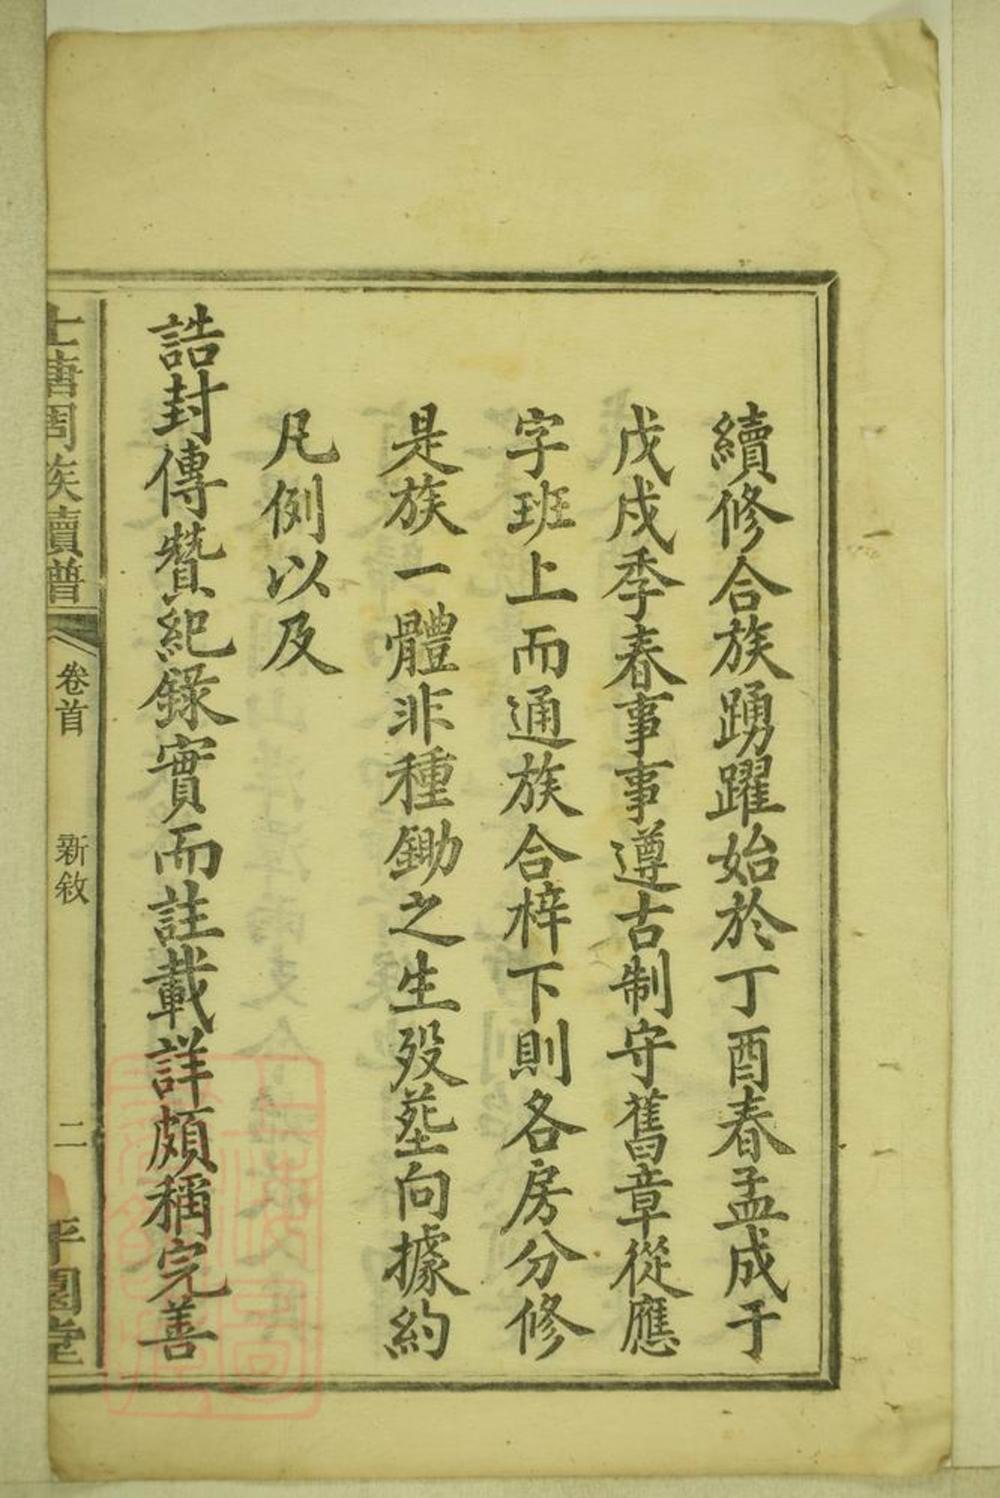 續修合族踴躍始於丁酉春孟成于
戊戌季春事事遵古制守舊章從應
字班上而通族合梓下則各房分修
是族一體非種鋤之生歿塋向據約
凡例以及
誥封傳贊紀錄實而註載詳頗稱完善
士唐周族續譜 卷首 新敘 二 平園堂